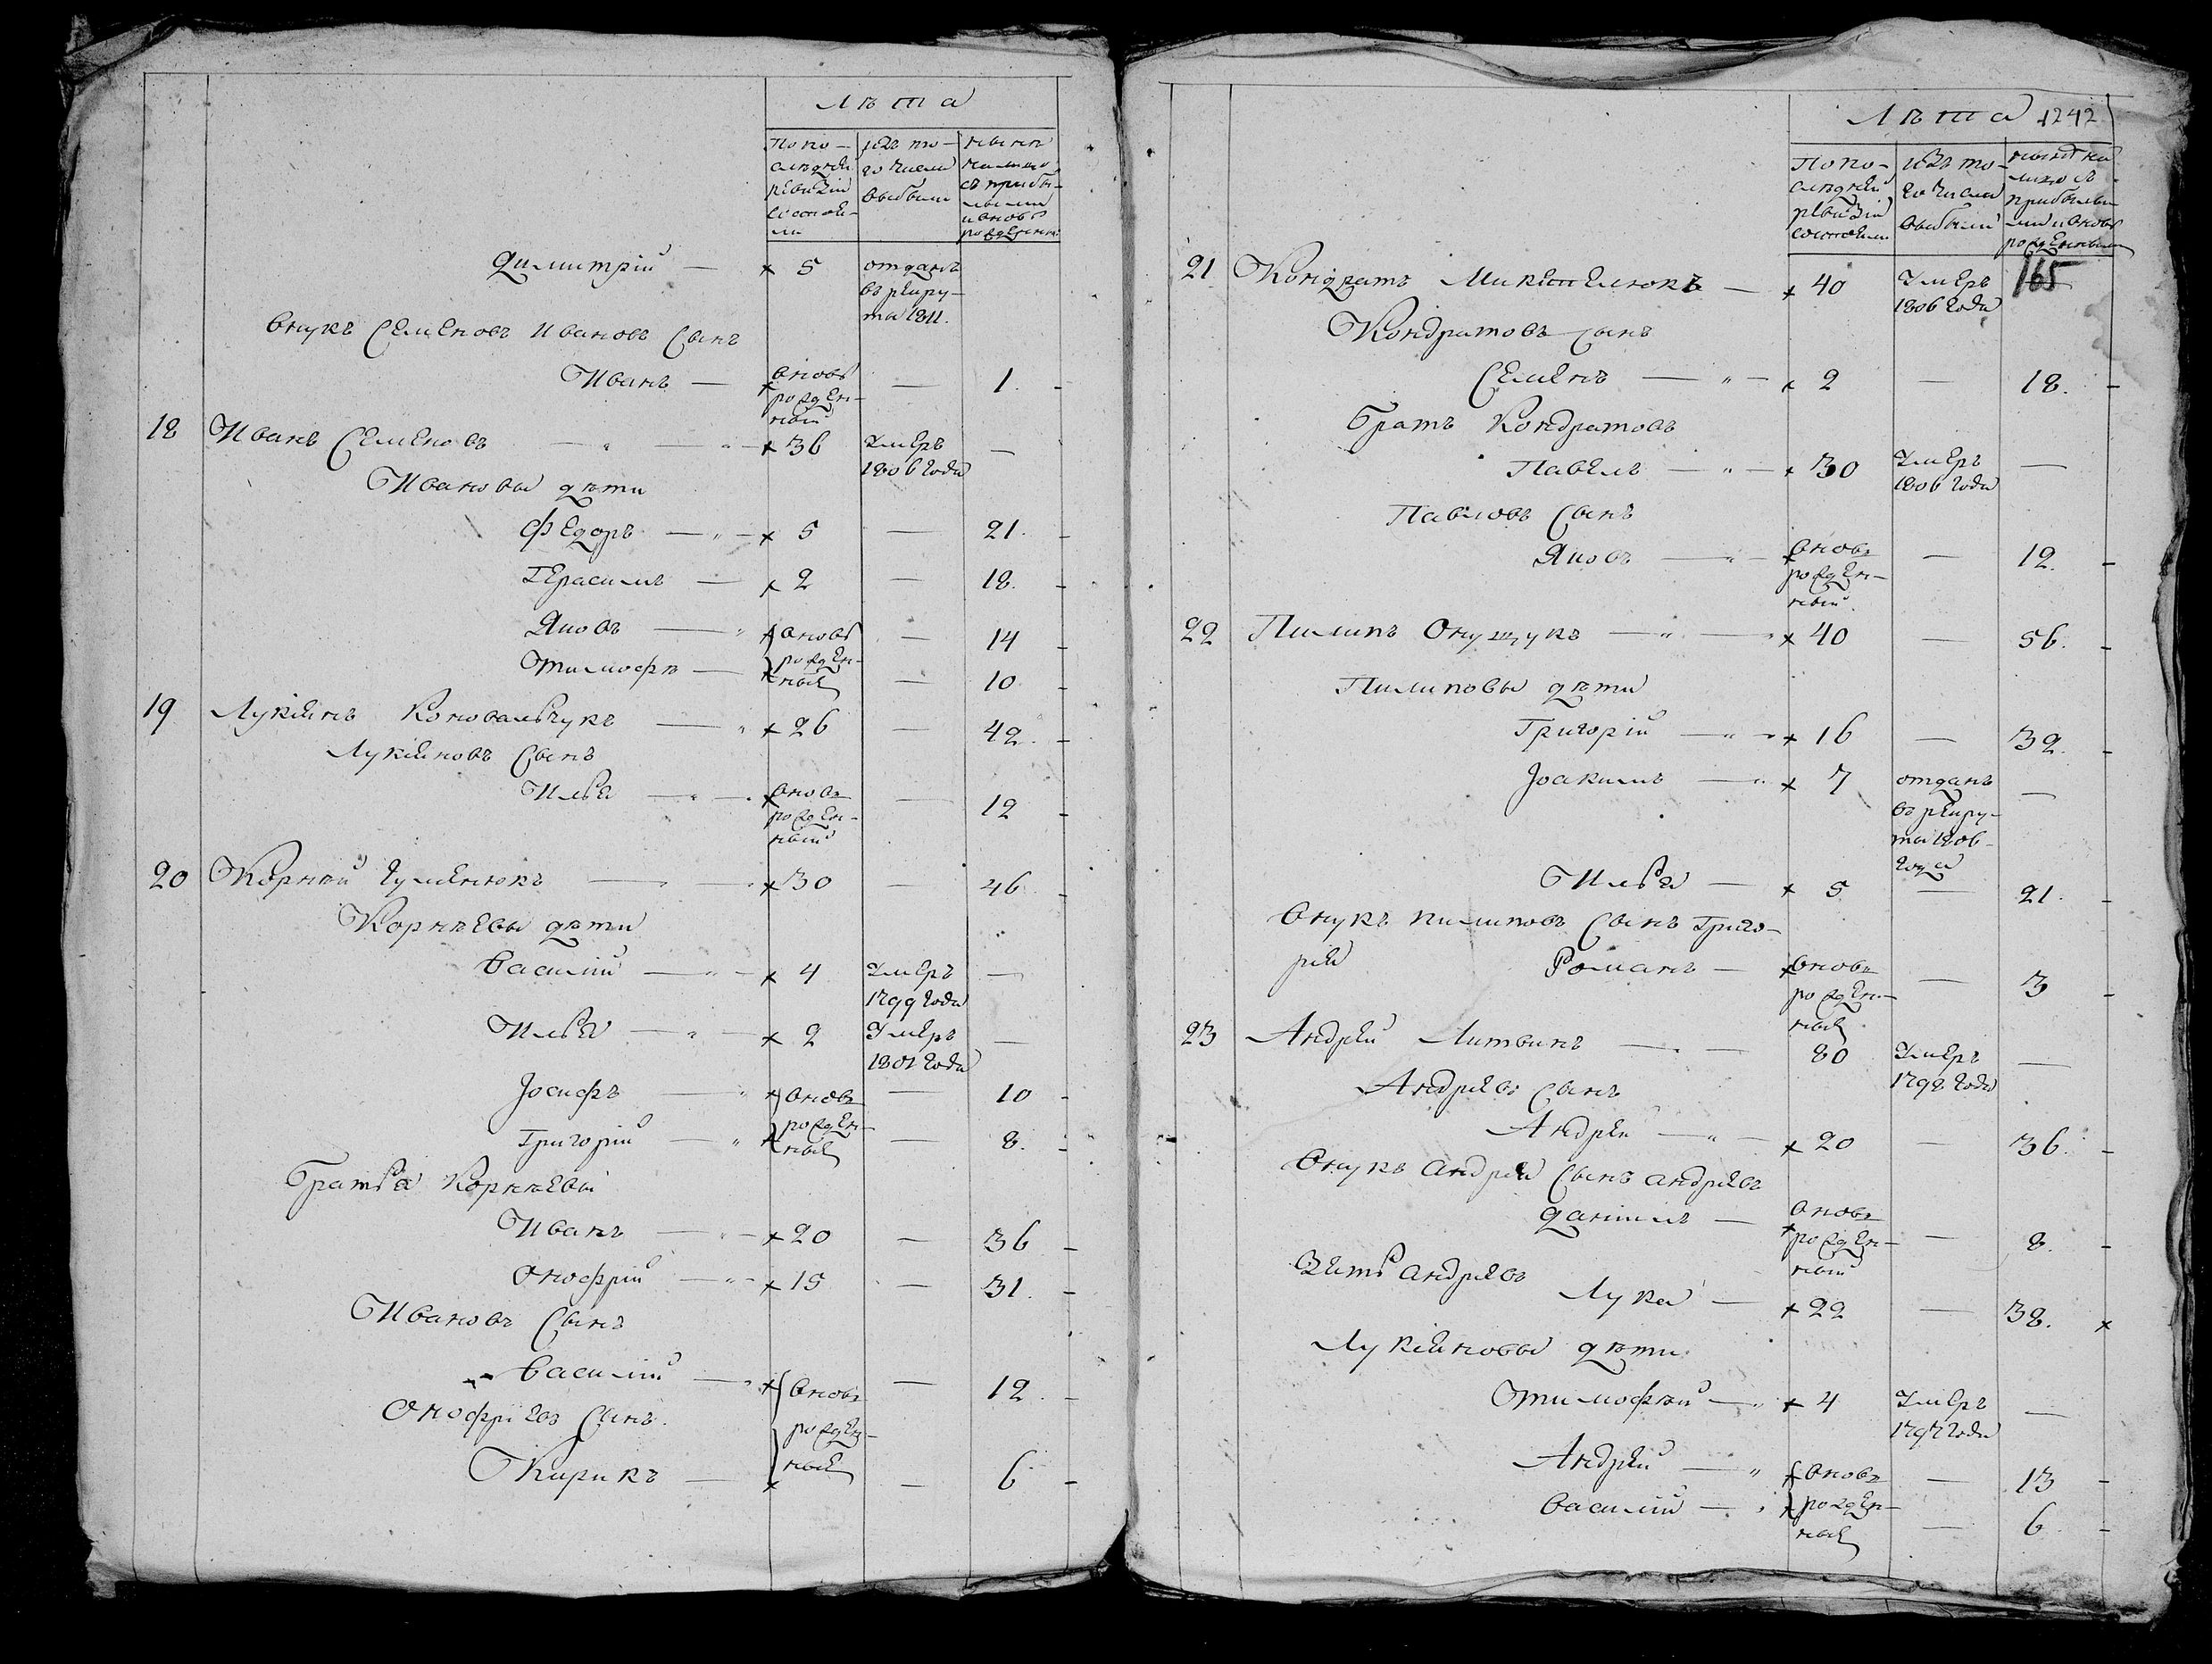 Лѣта
По по-
слѣдней
ревизіи
состоя-
ли
изъ то-
го числа
выбыли
нынѣ
на лицо
съ прибы-
лыми
и вновь
рожденны
Димитрій — 5 отданъ
въ рекру-
та 1811.
Внукъ Семеновъ Ивановъ Сынъ
Иванъ — вновь — 1.
рожден-
ный
18 Иванъ Семеновъ — 36 Умеръ —
1806 года
Ивановы дѣти
Федоръ — 5 — 21.
Герасимъ — 2 — 18.
Яковъ — вновь — 14
рожден-
Отимофѣ — ныя — 10
19 Лукіянъ Ковальчукъ — 26 — 42.
Лукіяновъ Сынъ
Илья — вновь — 12
рожден-
ный
20 Корнѣй Гуменюкъ — 30 — 46
Корнѣевы дѣти
Василій — 4 Умеръ —
1799 года
Илья — 2 Умеръ —
1801 года
Іосифъ — вновь — 10
рожден-
Григорій — ныя — 8.
Братья Корнѣевы
Иванъ — 20 — 36
Онофрій — 15 — 31.
Ивановъ Сынъ
Василій — вновь — 12
Онофріевъ Сынъ. рожден-
ныя
Кирикъ — — 6
Лѣта 1242
По по-
слѣдней
ревизіи
состояли
изъ то-
го числа
выбыли
нынѣ на
лицо съ
прибылы-
ми и вновь
рожденными
165
21 Кондратъ Микитенюкъ — 40 Умеръ
1806 года
Кондратовъ Сынъ
Семенъ — 2 — 18.
Братъ Кондратовъ
Павелъ — 30 Умеръ —
1806 года
Павловъ Сынъ
Яковъ — вновь — 12.
рожден-
ный.
22 Пилипъ Онущукъ — 40 — 56.
Пилиповы дѣти
Григорій — 16 — 32.
Іоакимъ — 7 отданъ —
въ рекру-
та 1806
года
Илья — 5 — 21.
Внукъ Пилиповъ Сынъ Григо-
рія Романъ — вновь — 3
рожден-
ныя
23 Андрей Литвинъ — 80 Умеръ —
1798 года
Андреевъ Сынъ
Андрей — 20 — 36.
Внукъ Андрея Сынъ Андреевъ
Даніилъ — вновь — 8.
рожден-
ный
Зять Андреевъ
Лука — 22 — 38.
Лукіяновы дѣти
Отимофѣй — 4 Умеръ —
1797 года
Андрей — вновь — 13
Василій — рожден- — 6
ныя